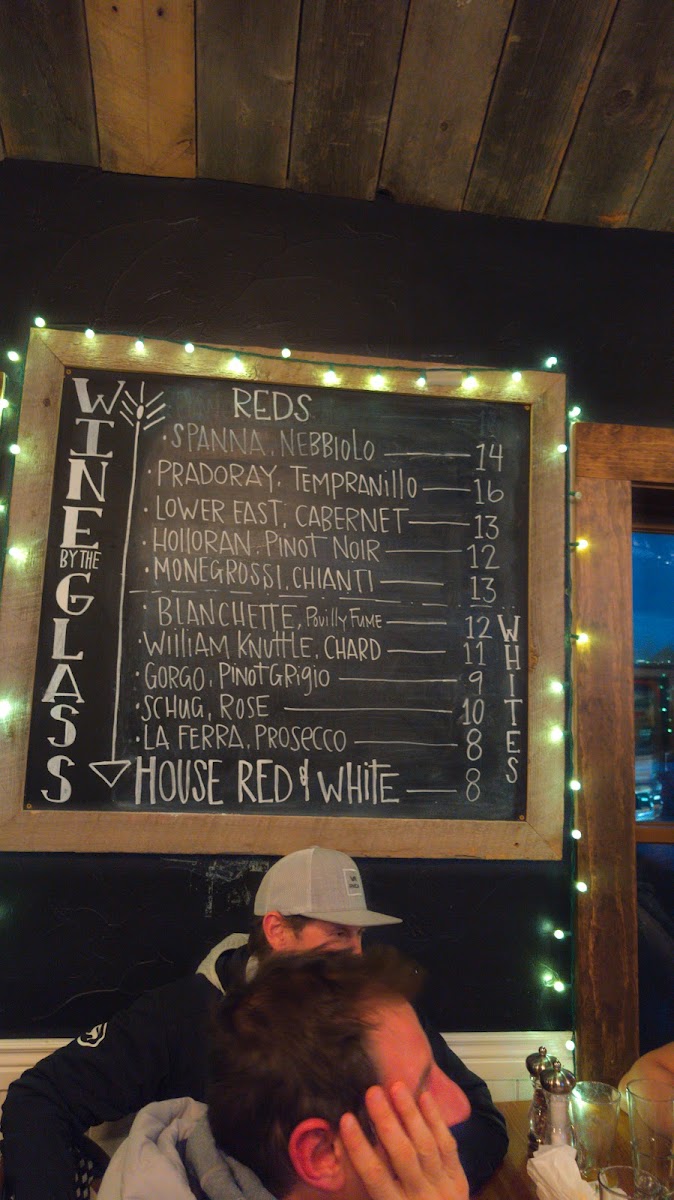 WINE BY THE GLASS
REDS
· SPANNA, NEBBIOLO — 14
· PRADORAY, TEMPRANILLO — 16
· LOWER EAST, CABERNET — 13
· HOLLORAN, PINOT NOIR — 12
· MONEGROSSI, CHIANTI — 13
WHITES
· BLANCHETTE, POUILLY FUME — 12
· WILLIAM KNUTTLE, CHARD — 11
· GORGO, PINOT GRIGIO — 9
· SCHUG, ROSE — 10
· LA FERRA, PROSECCO — 8
HOUSE RED & WHITE — 8